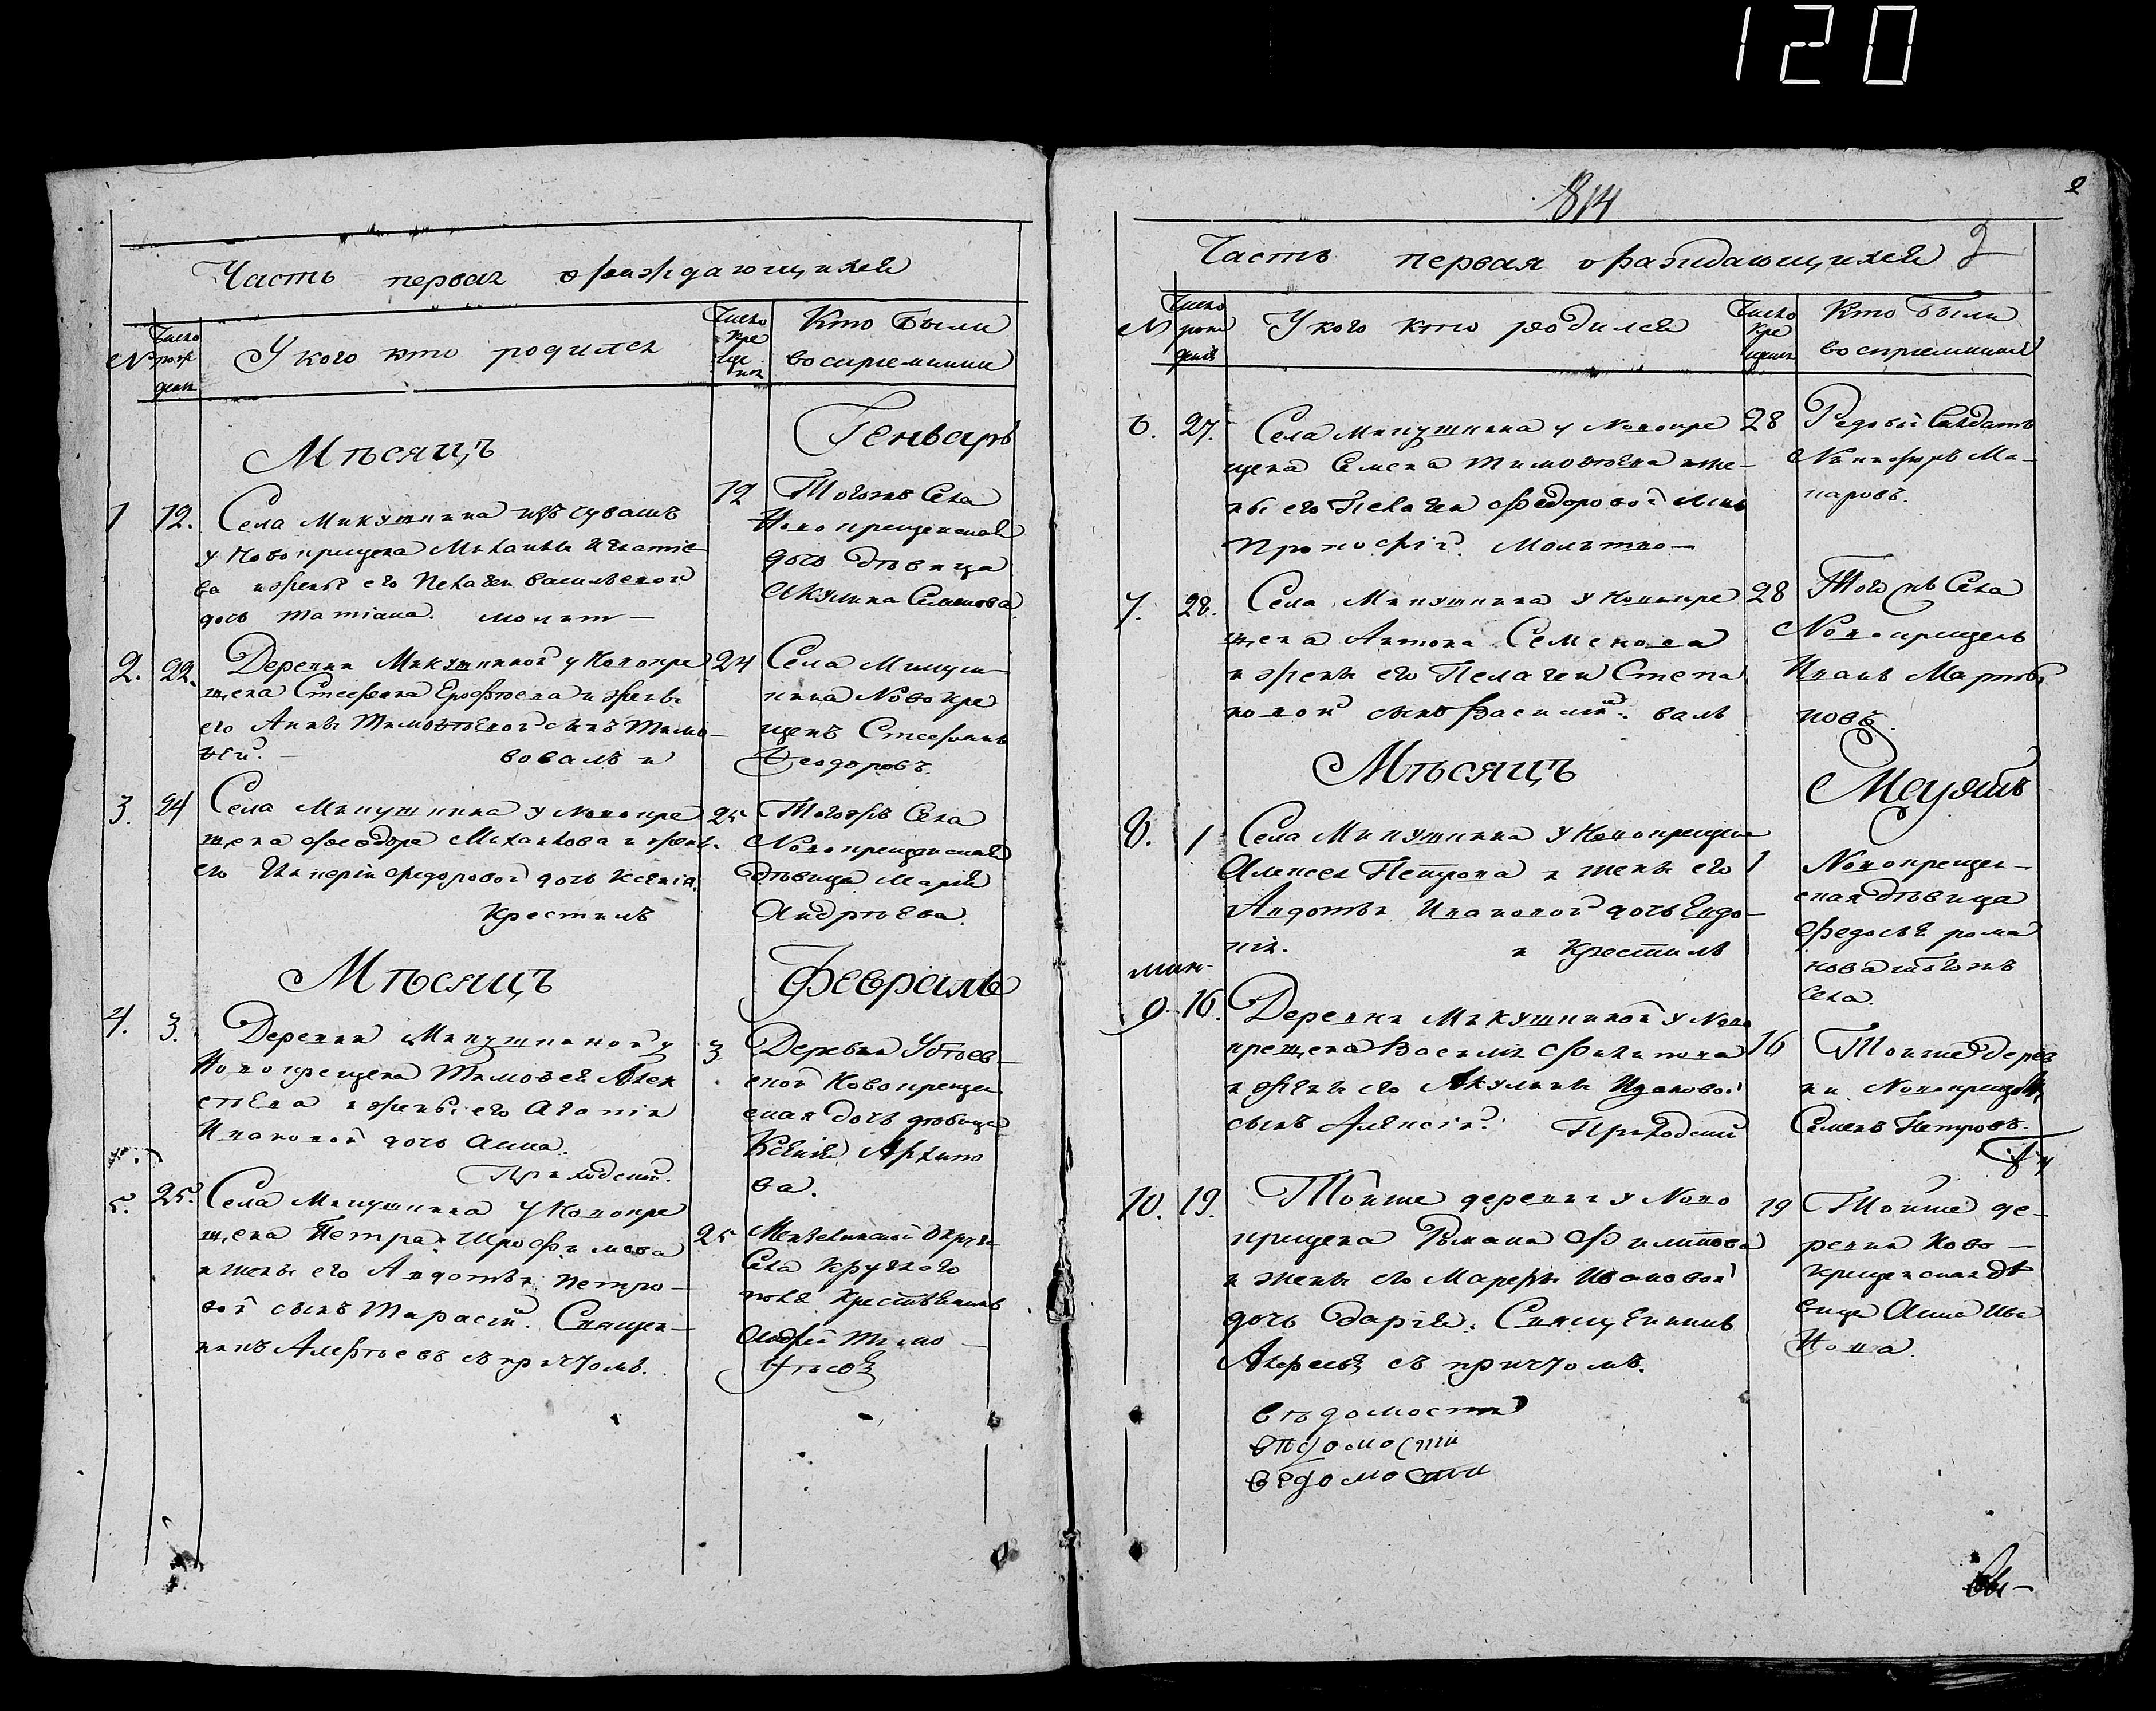 120
Часть первая о рождающихся
№
Число рож дения
У кого кто родился
Число кре ще ния
Кто были
восприемники
Мѣсяцъ
Генварь
1
12.
Села Микушкина изъ чувашъ
у новокрещена Михаила Игнатіе
ва и жены его Пелагеи Васильевой
дочь Татіана. молит—
12
Тогожъ Села
Новокрещенская
дочь дѣвица
Акулина Семенова.
2.
22.
Деревни Микушкиной у новокре
щена Стефана Ерофѣева и жены
его Анны Тимоѳѣевой сынъ Тимо—
ѳей.— вовалъ и
24
Села Микуш—
кина Новокре
щенъ Стефанъ
Ѳеодоровъ.
3.
24
Села Микушкина у новокре
щена Феодора Михайлова и жены
его Гликеріи Федоровой дочь Ксенія.
Крестилъ
25
Тогожъ Села
Новокрещенская
дѣвица Марія
Андрѣева.
Мѣсяцъ
Февраль
4.
3.
Деревни Микушкиной у
Новокрещена Тимоѳея Алек
сѣева и жены его Агапіи
Ивановой дочь Анна.
Приходский.
3
Деревни
ской Новокрещен
ская дочь дѣвица
Ксенія Архипо
ва.
5.
25.
Села Микушкина у Новокре
щена Петра Трофимова
и жены его Авдотьи Петро—
вой сынъ Тарасій. Священ—
никъ Алефьевъ съ причтомъ.
25
Мензелинской округи
Села Круглаго
поля Крестьянинъ
Андрей Тимо—
ѳѣевъ
814
2
Часть первая о раждающихся
№
Число рож денія
У кого кто родился
Число кре щенія
Кто были
восприемники
6.
27.
Села Микушкина у Новокре
щена Семена Тимоѳѣева и же—
ны его Пелагеи Федоровой сынъ
Прокофій. Молитво—
28
Редовой Салдатъ
Никифоръ Ма—
каровъ.
7.
28.
Села Микушкина у Новокре
щена Антона Семенова
и жены его Пелагеи Степа
новой сынъ Василій. валъ
28
Тогожъ Села
Новокрещенъ
Иванъ Марты
новъ
Мѣсяцъ
8.
1
Села Микушкина у Новокрещена
Алексея Петрова и жены его
Авдотьи Ивановой дочь Евдо—
кія. и Крестилъ
1
Новокрещен—
ская дѣвица
Федосья рома
нова тогожъ
села.
9.
16.
Деревни Микушкиной у Ново
крещена Василья Филипова
и жены его Акулины Ивановой
сынъ Алексій. Приходский
16
Тойже дерев
ни Новокрещенъ
Семенъ Петровъ.
10.
19.
Тойже деревни у Ново
крещена Романа Филипова
и жены его Марфы Ивановой
дочь Дарія. Священникъ
Алефьевъ съ причтомъ.
19
Тойже де—
ревни Ново—
крещенская дѣ
вица Анна Ива
нова.
вѣдомости
вѣдомости
ведомости